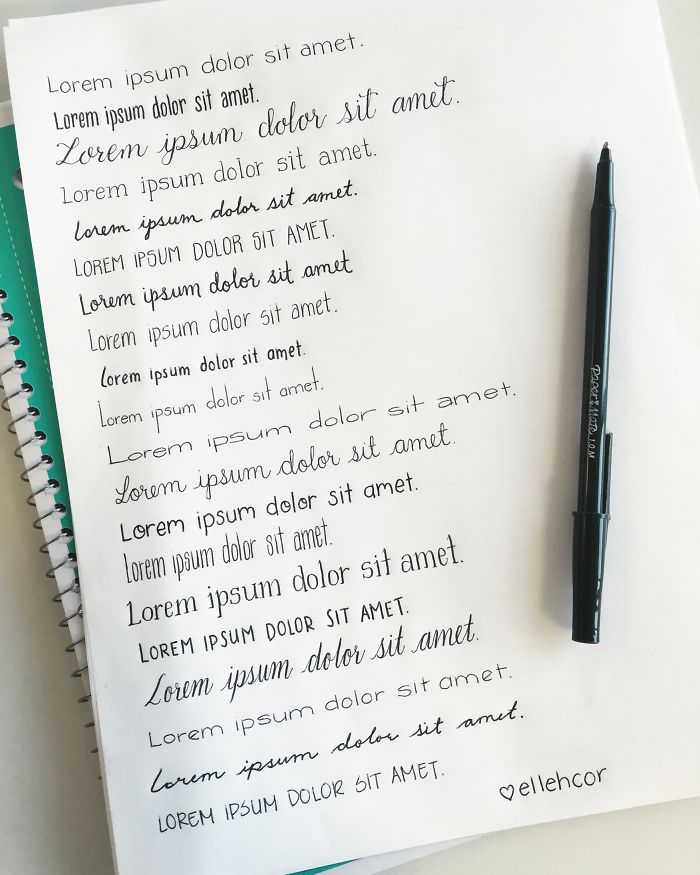 Lorem ipsum dolor sit amet.
Lorem ipsum dolor sit amet.
Lorem ipsum dolor sit amet.
Lorem ipsum dolor sit amet.
Lorem ipsum dolor sit amet.
LOREM IPSUM DOLOR SIT AMET.
Lorem ipsum dolor sit amet
Lorem ipsum dolor sit amet.
Lorem ipsum dolor sit amet.
Lorem ipsum dolor sit amet.
Lorem ipsum dolor sit amet.
Lorem ipsum dolor sit amet.
Lorem ipsum dolor sit amet.
Lorem ipsum dolor sit amet.
Lorem ipsum dolor sit amet.
LOREM IPSUM DOLOR SIT AMET.
Lorem ipsum dolor sit amet.
Lorem ipsum dolor sit amet.
Lorem ipsum dolor sit amet.
LOREM IPSUM DOLOR SIT AMET.
♡ellehcor
PAPER:MATE 1.0 M